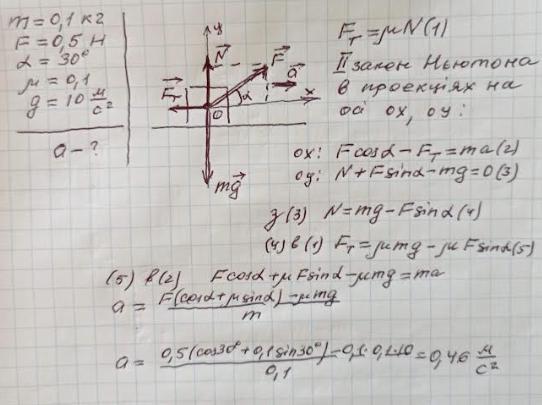 m = 0,1 кг
F = 0,5 Н
α = 30°
μ = 0,1
g = 10 м/с²
a - ?
y
N
F
a
Fт
α
x
O
mg
Fт = μN (1)
II закон Ньютона
в проекціях на
осі ox, oy:
ox: Fcosα - Fт = ma (2)
oy: N + Fsinα - mg = 0 (3)
з (3) N = mg - Fsinα (4)
(4) в (1) Fт = μmg - μFsinα (5)
(5) в (2) Fcosα + μFsinα - μmg = ma
a = F(cosα + μsinα) - μmg / m
a = 0,5(cos30° + 0,1 sin30°) - 0,1·0,1·10 / 0,1 = 0,46 м/с²